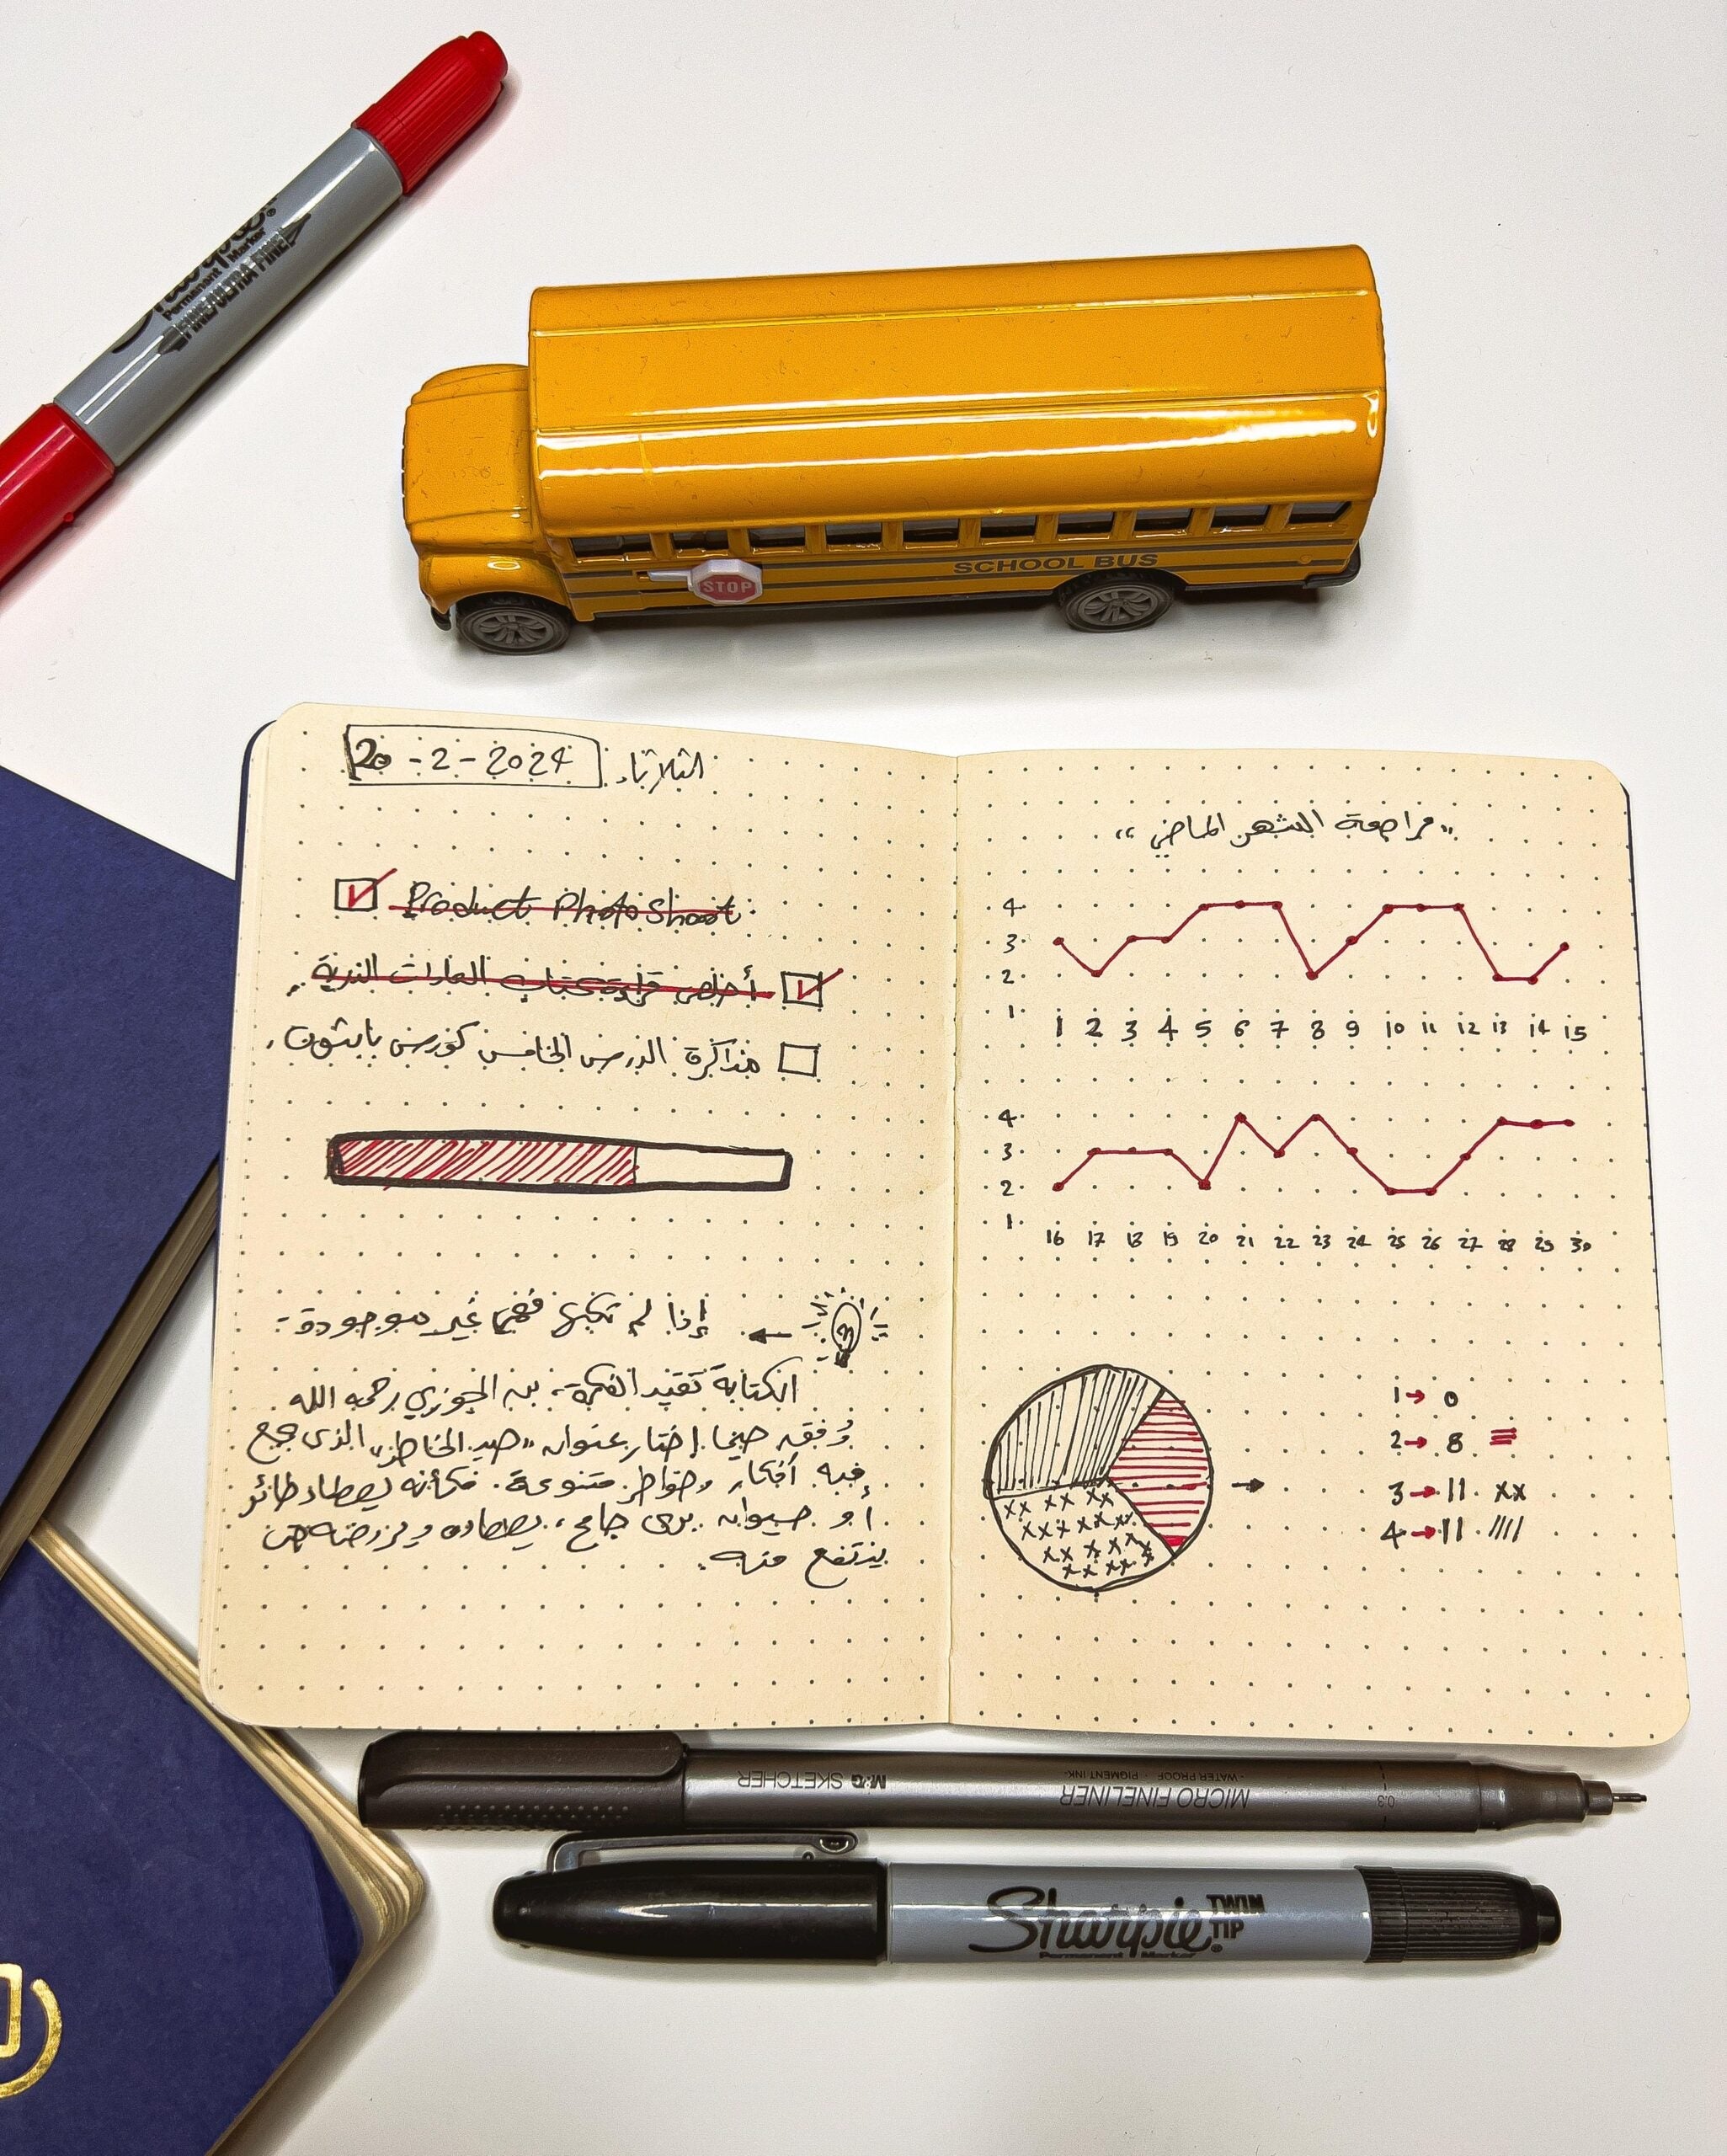 Sharpie
Permanent Marker
FINE/ULTRA FINE
STOP
SCHOOL BUS
الثلاثاء 20-2-2024
Product PhotoShoot
أخلص قراءة كتاب العادات الذرية.
مذاكرة الدرس الخامس كورس بايثون.
إذا لم تكتبها فهي غير موجودة.
الكتابة تقيد الفكرة، بن الجوزي رحمه الله
وُفق حينما إختار عنوان "صيد الخاطر" الذي جمع
فيه أفكار وخواطر متنوعة. فكأنه يصطاد طائر
أو حيوان بري جامح، يصطاده ويروضه
ينتفع منه.
"مراجعة الشهر الماضي"
4
3
2
1
1 2 3 4 5 6 7 8 9 10 11 12 13 14 15
4
3
2
1
16 17 18 19 20 21 22 23 24 25 26 27 28 29 30
1→ 0
2→ 8
3→ 11 xx
4→ 11 ////
M&G SKETCHER
MICRO FINELINER
-WATER PROOF - PIGMENT INK-
0.3
Sharpie TWIN TIP
Permanent Marker